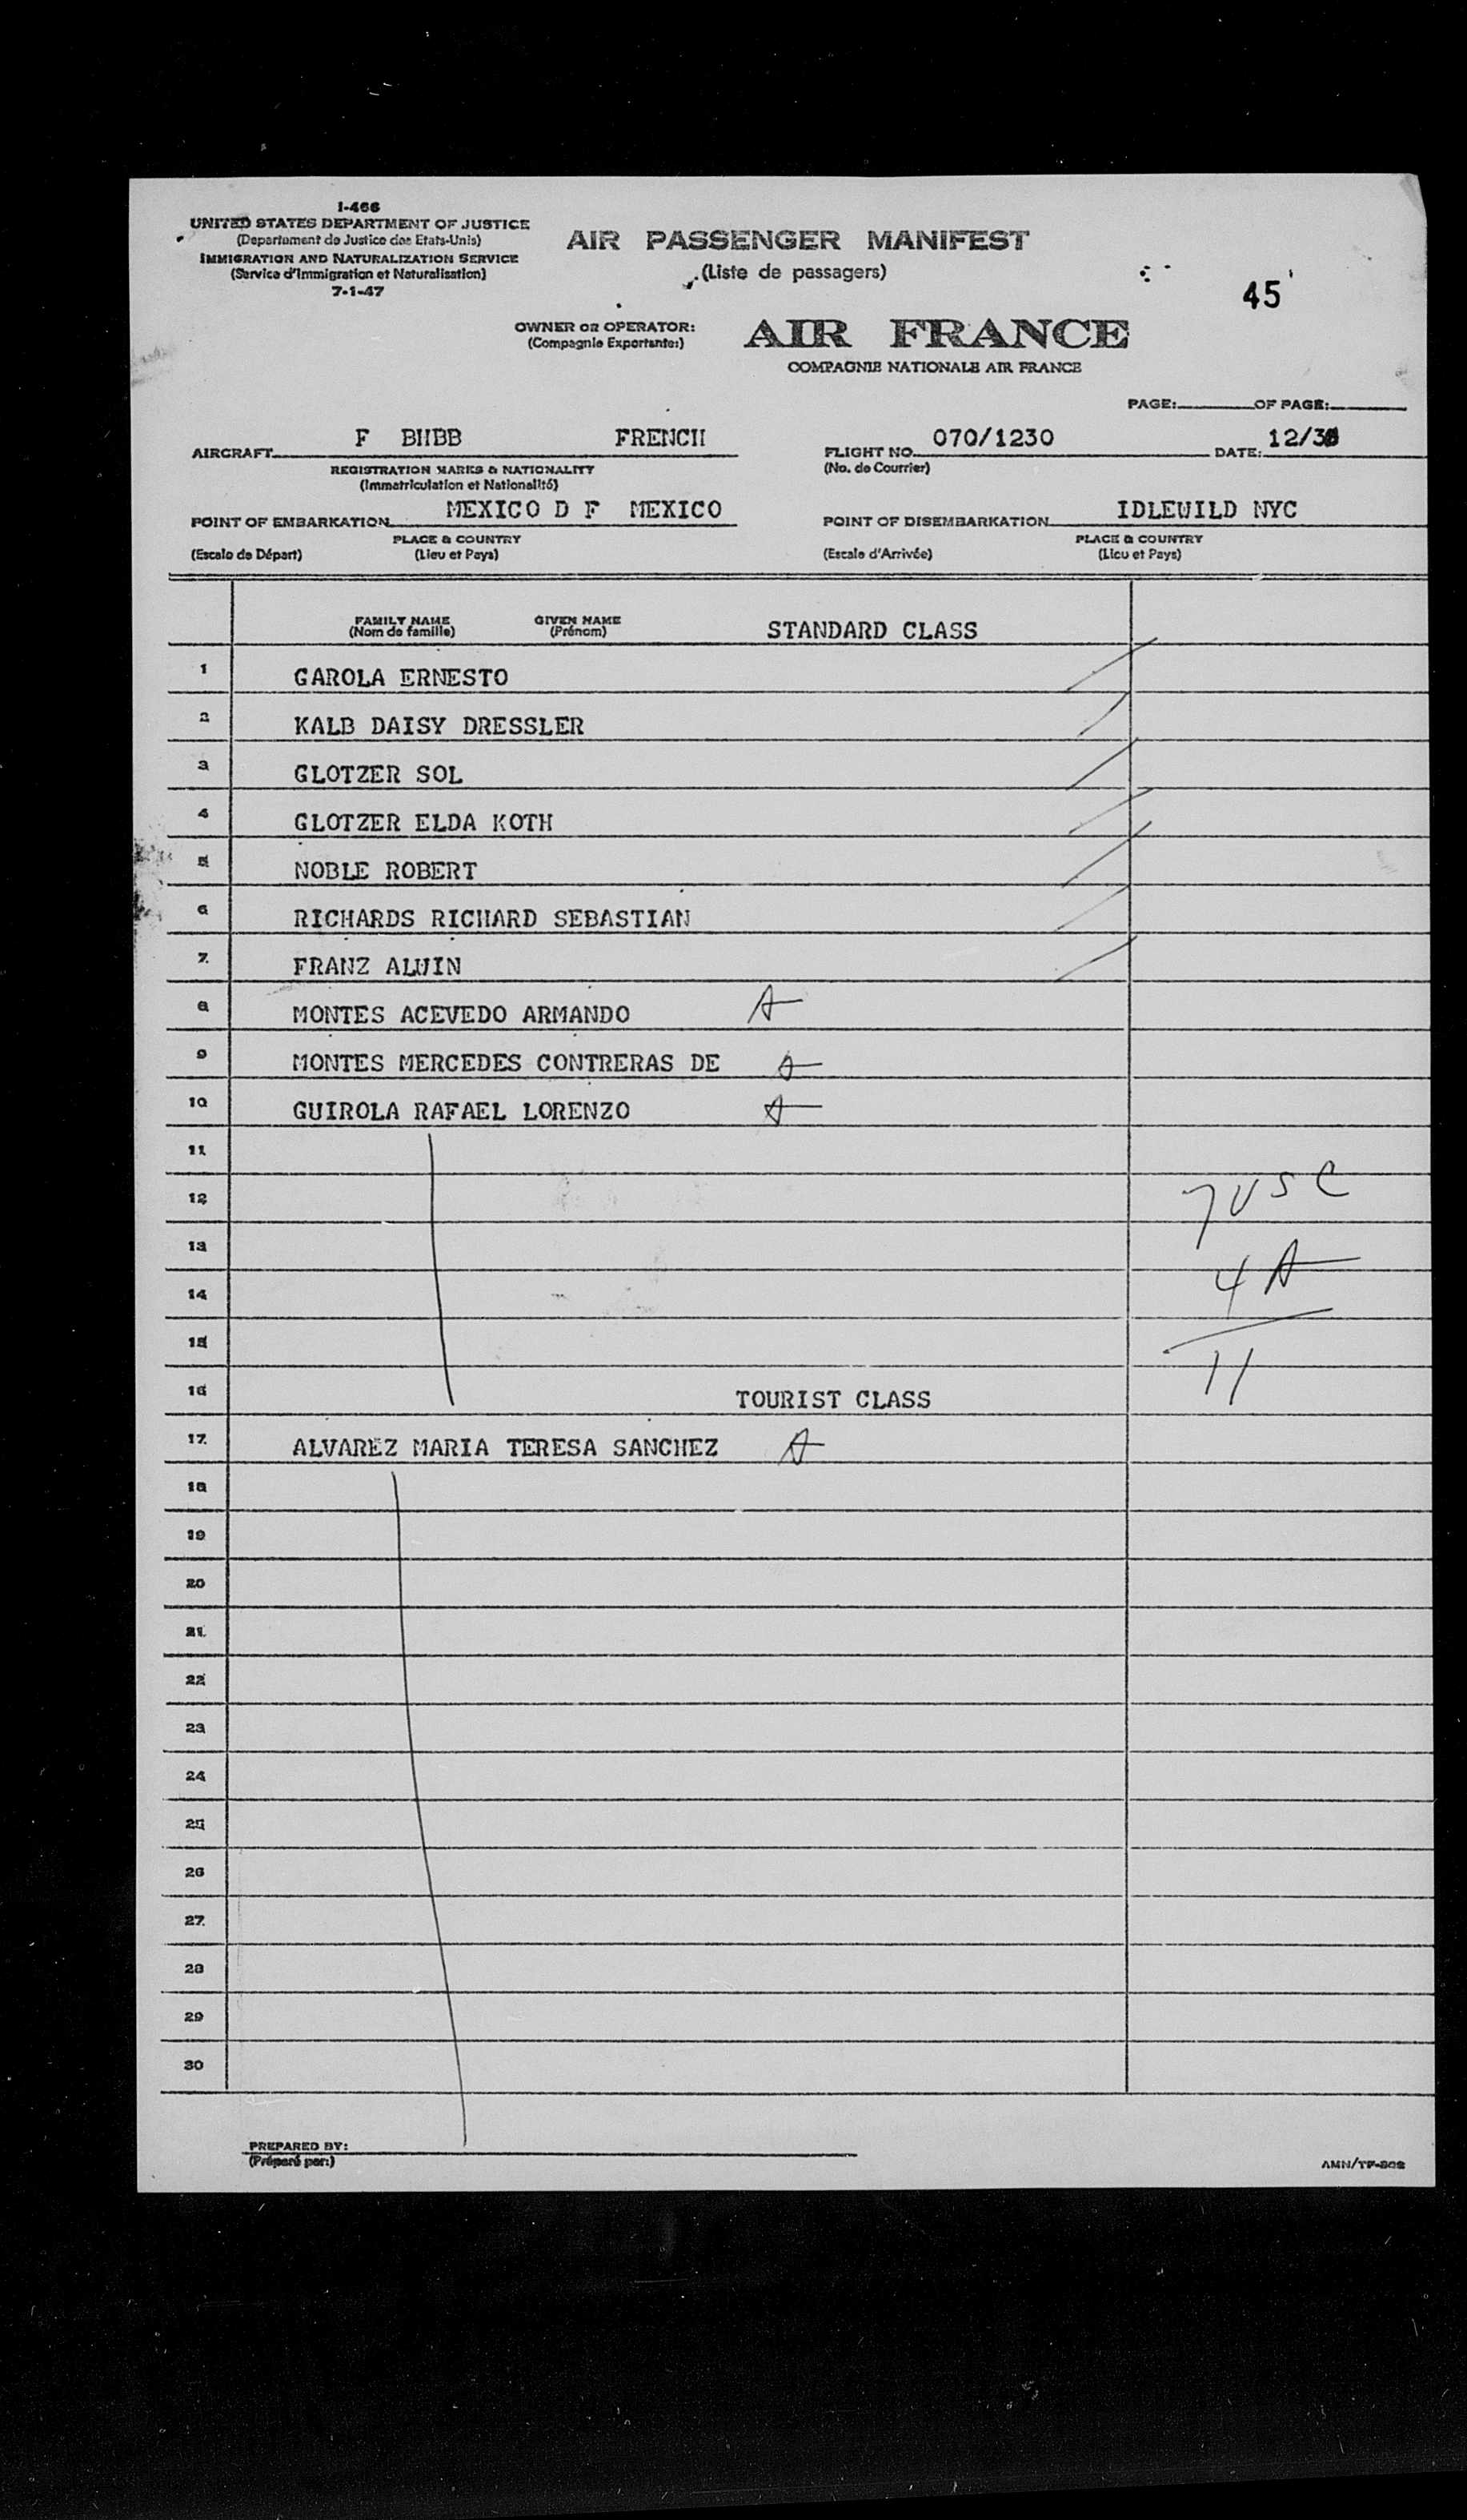 I-466
UNITED STATES DEPARTMENT OF JUSTICE
(Departament de Justice des Etats-Unis)
IMMIGRATION AND NATURALIZATION SERVICE
(Service d'Immigration et Naturalisation)
7-1-47
AIR PASSENGER MANIFEST
(Liste de passagers)
45
OWNER OR OPERATOR:
(Compagnie Exportante:)
AIR FRANCE
COMPAGNIE NATIONALE AIR FRANCE
PAGE: OF PAGE:
AIRCRAFT F BHBB FRENCH
REGISTRATION MARKS & NATIONALITY
(Immatriculation et Nationalité)
FLIGHT NO. 070/1230 DATE:
(No. de Courrier)
POINT OF EMBARKATION MEXICO D F MEXICO
PLACE & COUNTRY
(Escale de Départ) (Lieu et Pays)
POINT OF DISEMBARKATION IDLEWILD NYC
PLACE & COUNTRY
(Escale d'Arrivée) (Lieu et Pays)
FAMILY NAME GIVEN NAME STANDARD CLASS
(Nom de famille) (Prénom)
1 GAROLA ERNESTO
2 KALB DAISY DRESSLER
3 GLOTZER SOL
4 GLOTZER ELDA KOTH
5 NOBLE ROBERT
6 RICHARDS RICHARD SEBASTIAN
7 FRANZ ALWIN
8 MONTES ACEVEDO ARMANDO A
9 MONTES MERCEDES CONTRERAS DE A
10 GUIROLA RAFAEL LORENZO A
11
12 7 USC
13
14 4 A
15
16 TOURIST CLASS 11
17 ALVAREZ MARIA TERESA SANCHEZ A
18
19
20
21
22
23
24
25
26
27
28
29
30
PREPARED BY:
(Préparé par:)